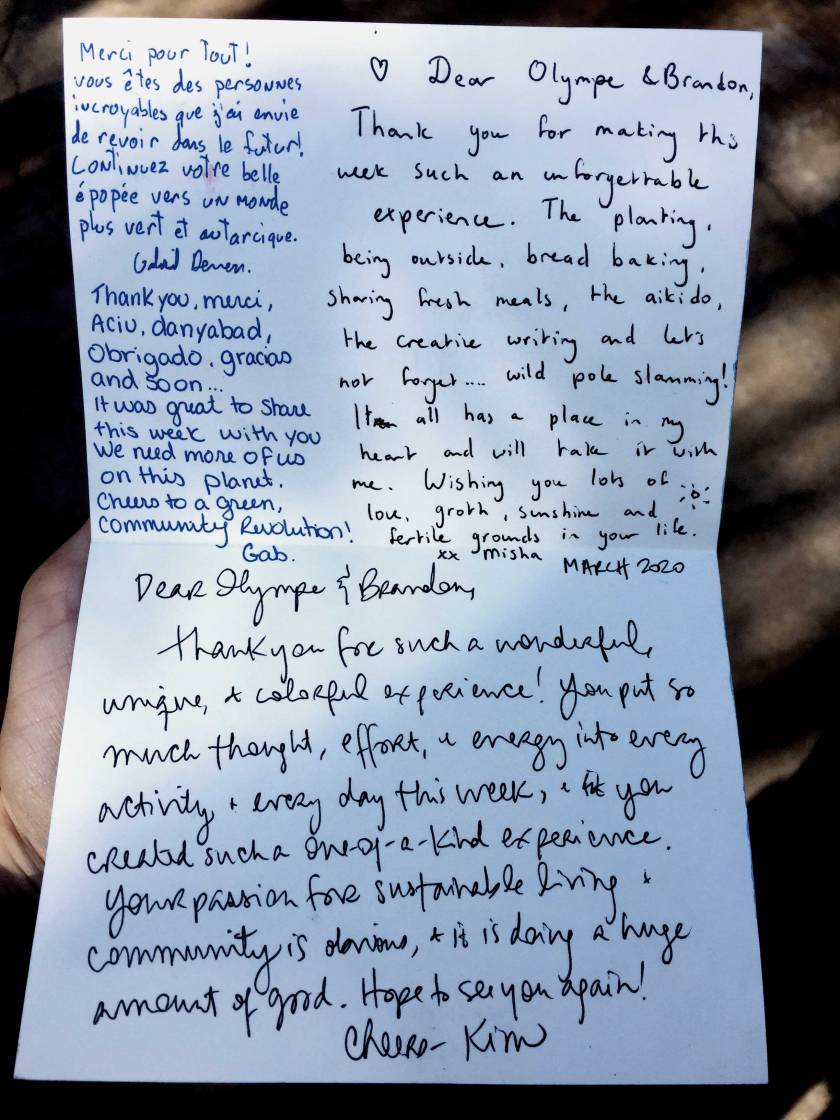 Merci pour Tout!
vous êtes des personnes
incroyables que j'ai envie
de revoir dans le futur!
Continuez votre belle
épopée vers un monde
plus vert et autarcique.
Thank you, merci,
Aciu, danyabad,
Obrigado, gracias
and soon...
It was great to share
this week with you
We need more of us
on this planet.
Cheers to a green,
Community Revolution!
Gab.
♡ Dear Olympe & Brandon,
Thank you for making this
week such an unforgettable
experience. The planting,
being outside, bread baking,
sharing fresh meals, the aikido,
the creative writing and let's
not forget.... wild pole slamming!
It all has a place in my
heart and will take it with
me. Wishing you lots of
love, groth, sunshine and
fertile grounds in your life.
xx misha
MARCH 2020
Dear Olympe & Brandon,
Thank you for such a wonderful,
unique, + colorful experience! You put so
much thought, effort, + energy into every
activity + every day this week, + you
created such a one-of-a-kind experience.
Your passion for sustainable living +
community is obvious, + it is doing a huge
amount of good. Hope to see you again!
Cheers- Kim